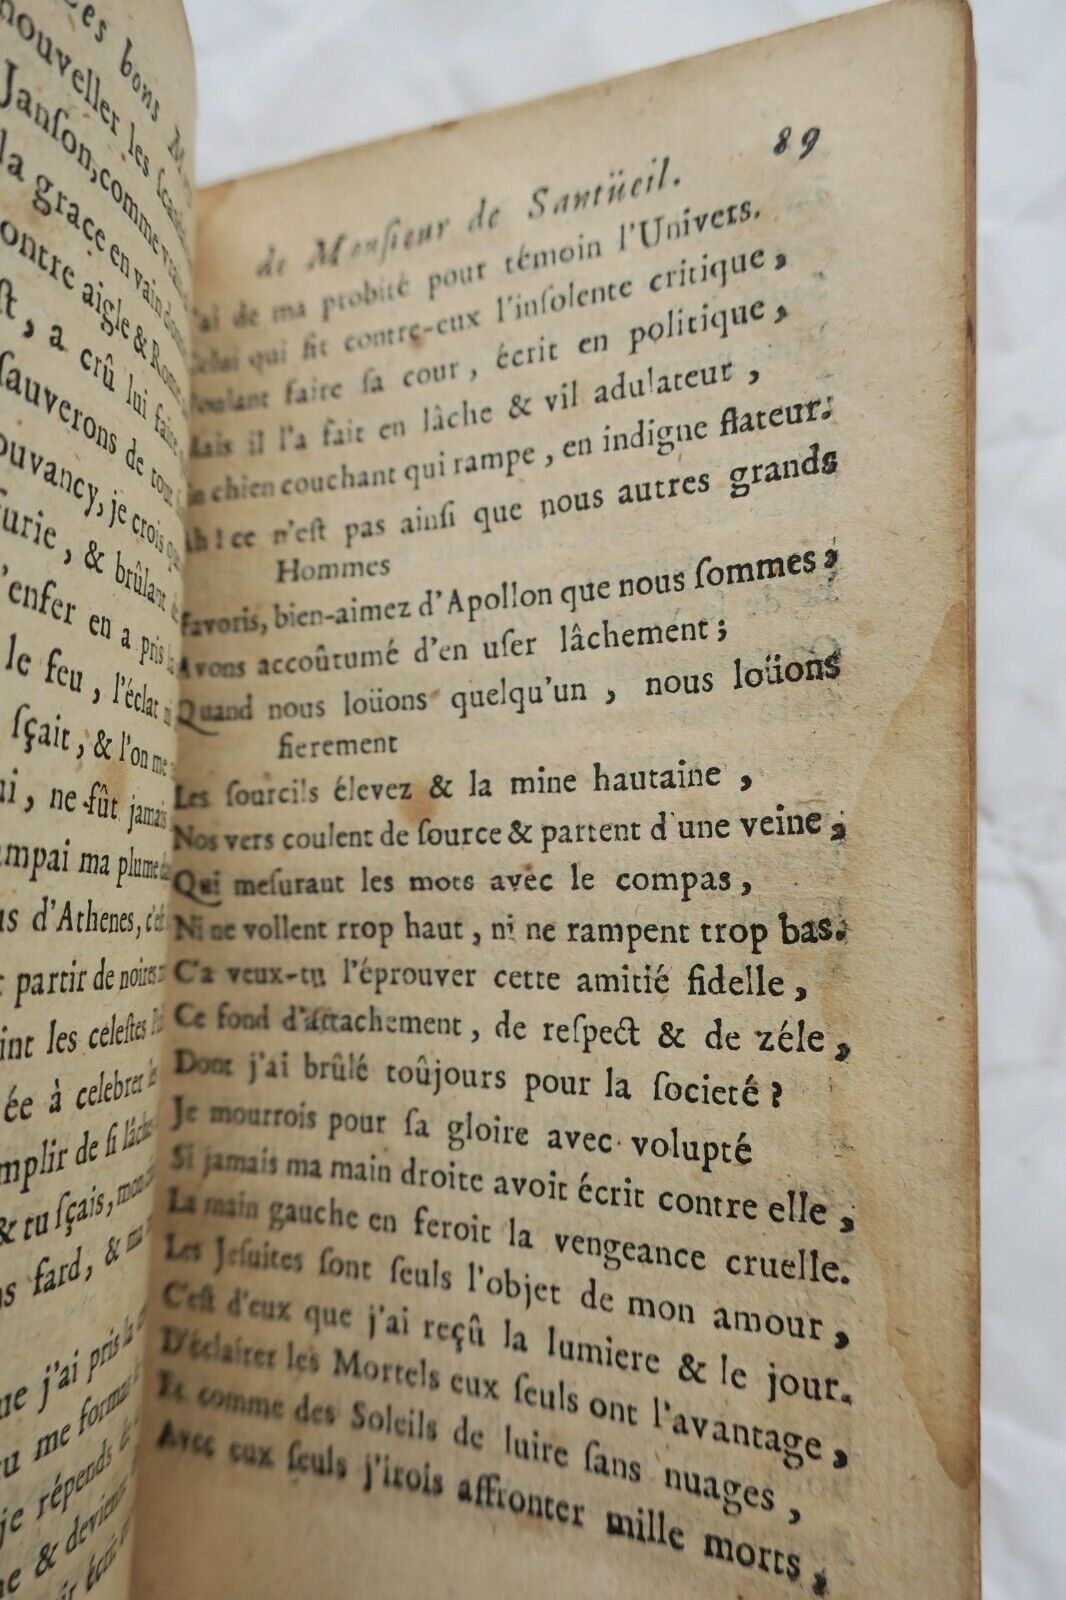 Les bons M
nouveller les
Janſon, comme
la grace en vain
ontre aigle & Rome
ſt, a crû lui faire
ſauverons de tout
ouvancy, je crois que
furie, & brûlant
'enfer en a pris la
le feu, l'éclat ni
ſçait, & l'on me
ui, ne-fût jamais
mpai ma plume
us d'Athenes, c'eſt
partir de noires
int les celeſtes
ée à celebrer les
mplir de ſi lâche
& tu ſçais, mon
ns fard, & ma
ue j'ai pris la
u me formas
je répends de
e & deviens
écrit
de Monſieur de Santüeil. 89
J'ai de ma probité pour témoin l'Univers.
Celui qui fit contre-eux l'inſolente critique,
Voulant faire ſa cour, écrit en politique,
Mais il l'a fait en lâche & vil adulateur,
chien couchant qui rampe, en indigne flateur.
Ah! ce n'eſt pas ainſi que nous autres grands
Hommes
Favoris, bien-aimez d'Apollon que nous ſommes;
Avons accoûtumé d'en uſer lâchement;
Quand nous loüions quelqu'un, nous loüions
fierement
Les ſourcils élevez & la mine hautaine,
Nos vers coulent de ſource & partent d'une veine,
Qui meſurant les mots avec le compas,
Ni ne vollent rrop haut, ni ne rampent trop bas.
C'a veux-tu l'éprouver cette amitié fidelle,
Ce fond d'attachement, de reſpect & de zéle,
Dont j'ai brûlé toûjours pour la ſocieté?
Je mourrois pour ſa gloire avec volupté
Si jamais ma main droite avoit écrit contre elle,
La main gauche en feroit la vengeance cruelle.
Les Jeſuites ſont ſeuls l'objet de mon amour,
C'eſt d'eux que j'ai reçû la lumiere & le jour.
D'éclairer les Mortels eux ſeuls ont l'avantage,
Et comme des Soleils de luire ſans nuages,
Avec eux ſeuls j'irois affronter mille morts,